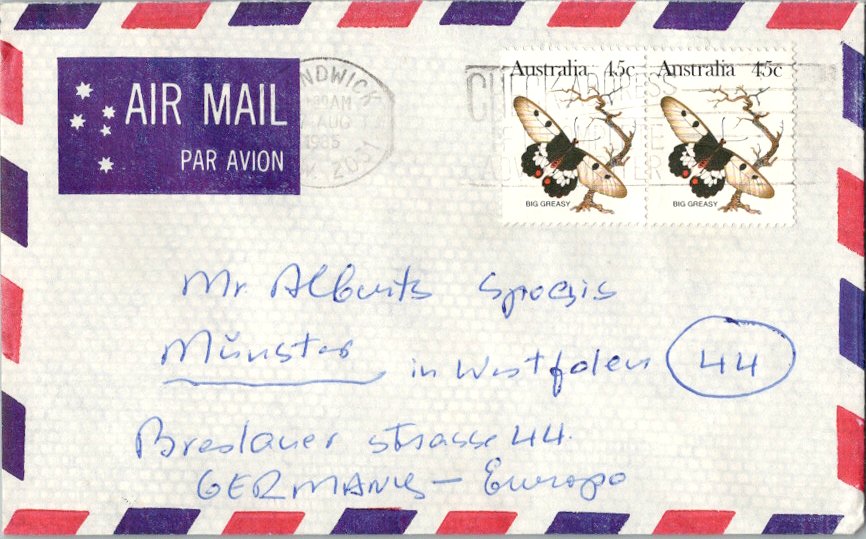 AIR MAIL
PAR AVION
NDWICK
AM
AUG
1985
2031
Australia 45c
BIG GREASY
Australia 45c
BIG GREASY
Mr Alberts Spoģis
Münster in Westfalen 44
Breslauer strasse 44.
GERMANY – Europa